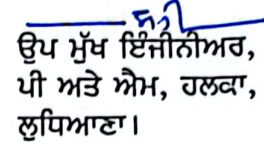 ਉਪ ਮੁੱਖ ਇੰਜੀਨੀਅਰ,
ਪੀ ਅਤੇ ਐਮ, ਹਲਕਾ,
ਲੁਧਿਆਣਾ।